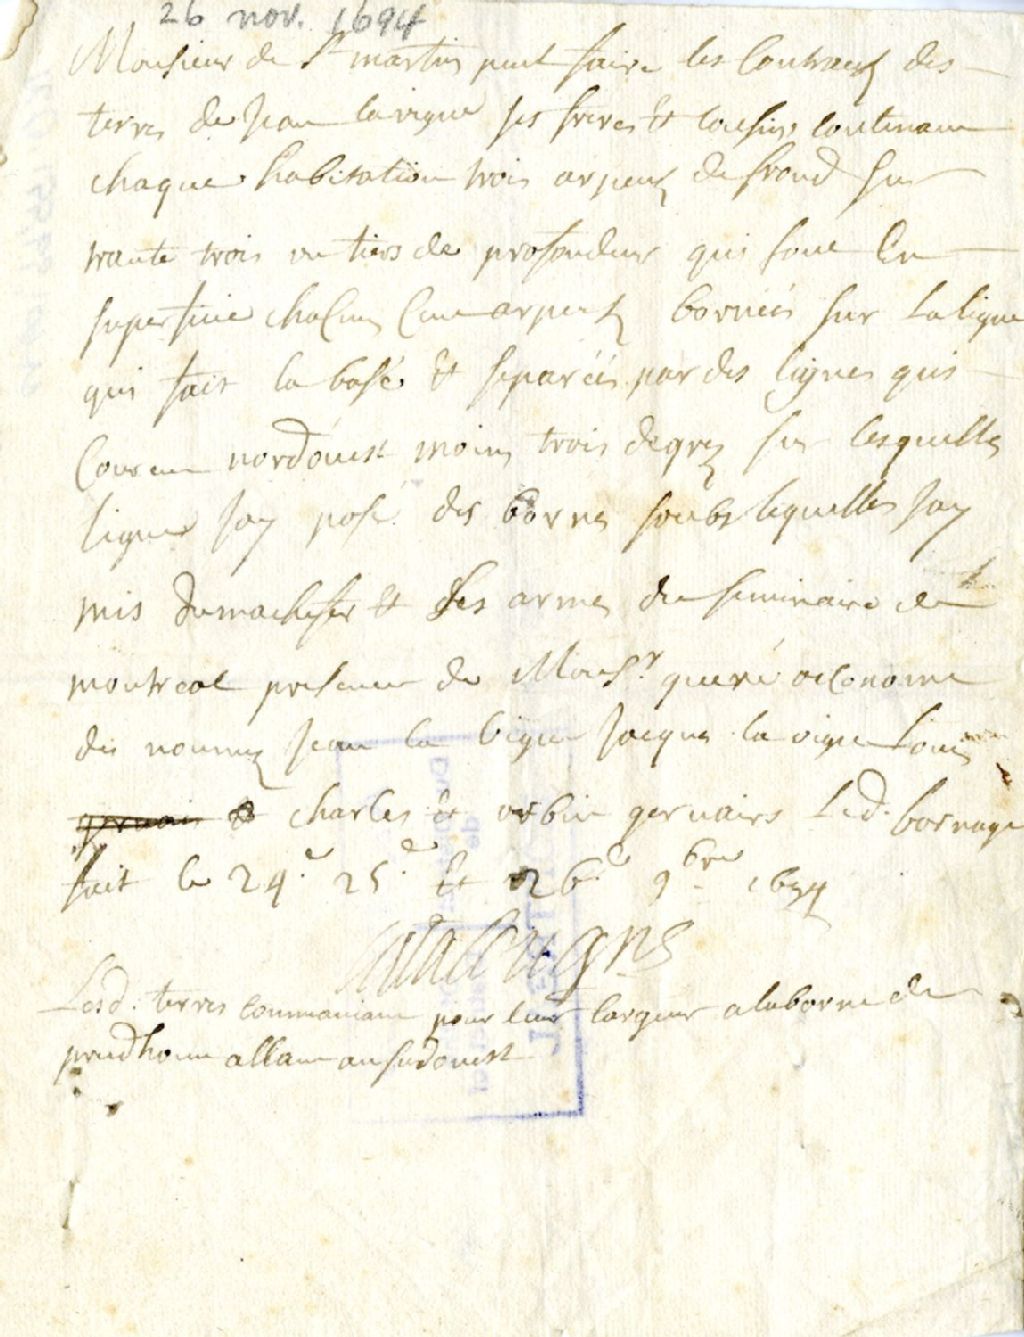 26 nov. 1694
Monsieur de St martin peut faire les Contracts des
terres de Jean lavigne ses freres et cousins contenant
chaque habitation trois arpens de frond sur
trante trois un tiers de profondeur qui font En
superficie chacun Cent arpens bornées sur la ligne
qui fait la base et separéés par des lignes qui
Courent nordouest moins trois degrez sur lesquelles
ligne Jay posé des bornes soubs lequelles Jay
mis du machefer et les armes du seminaire de
montreal presence de Monsr. oeconome
des nommez Jean la vigne Jacques la vigne Louis
charles et urbin gervaises Led. bornage
fait le 24e. 25e. et 26e 9bre 1694
Catalougne
Lesd. terres commancent pour leur largeur a la borne de
prudhomme allant au sudouest